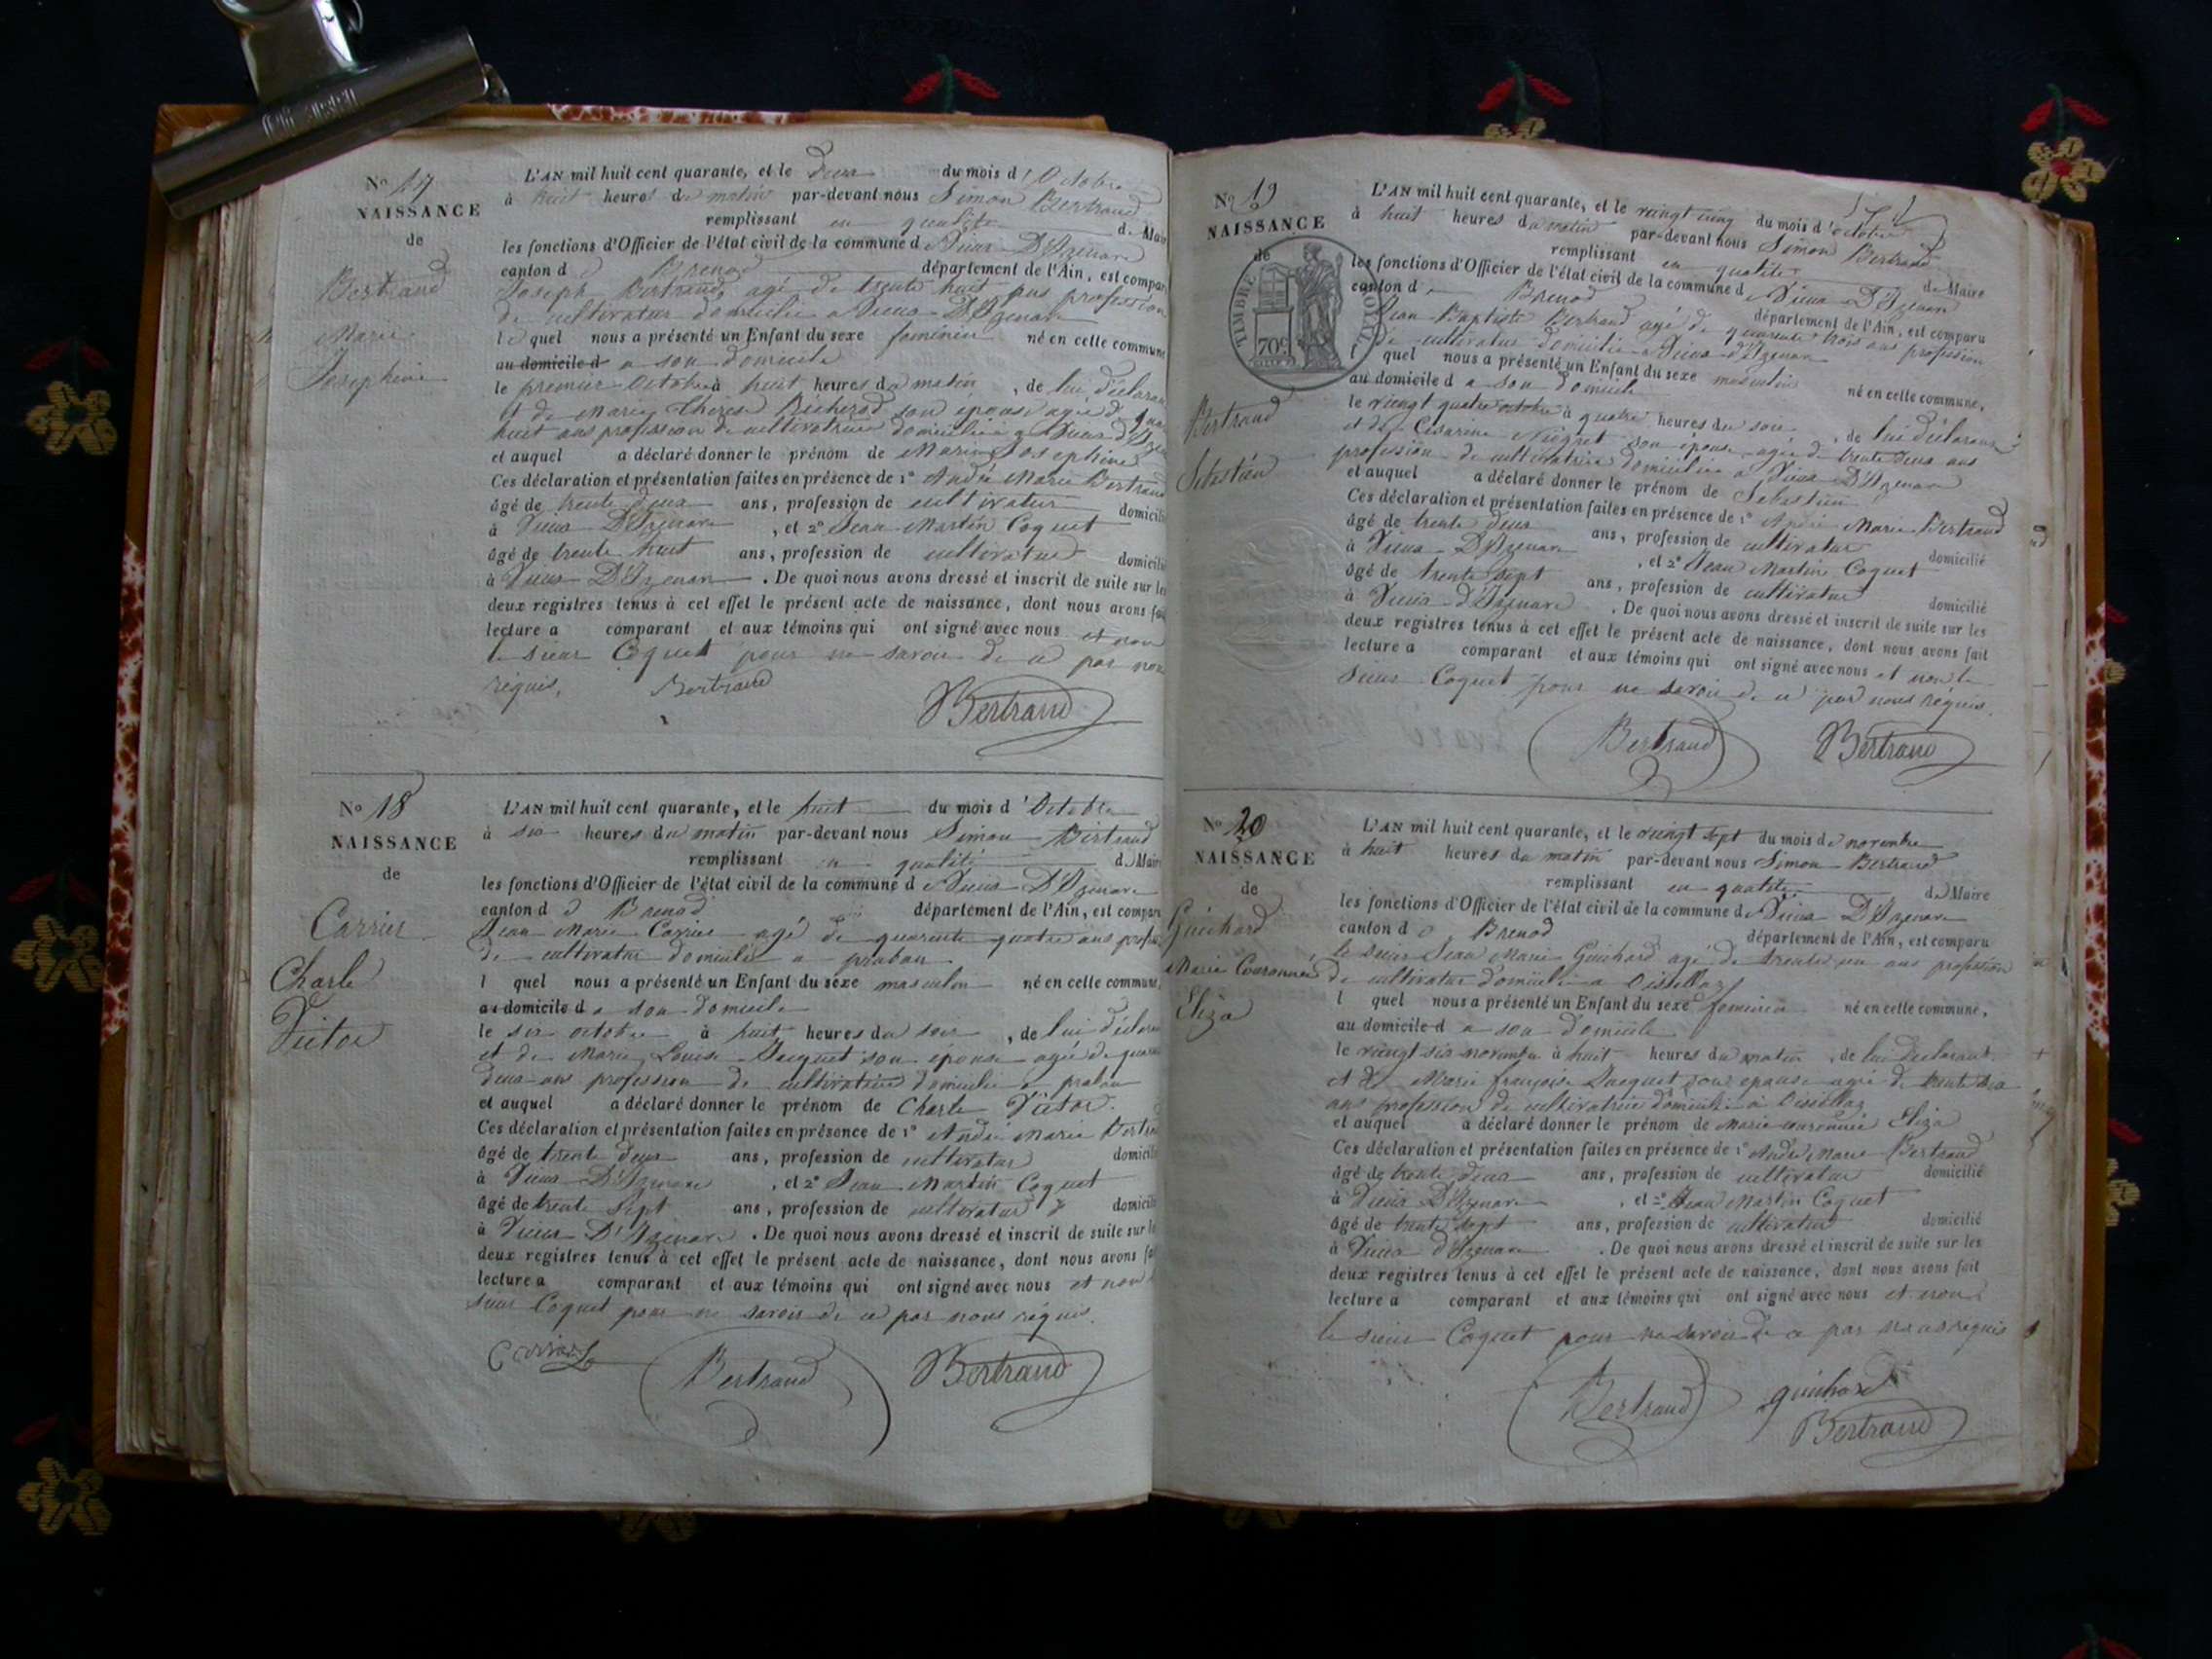 N° 17
NAISSANCE
de
Bertrand
Marie
Josephine
L'AN mil huit cent quarante, et le deux du mois d'Octobre
à huit heures du matin par-devant nous Simon Bertrand
remplissant en qualité de Mair
les fonctions d'Officier de l'état civil de la commune de Vieux D'Izenave
canton d Brenod département de l'Ain, est compar
Joseph Bertrand, agé de trente huit ans profession
de cultivateur domicilié a Vieux D'Izenave
lequel nous a présenté un Enfant du sexe feminin né en cette commune
au domicile d a son domicile
le premier Octobre à huit heures du matin, de lui déclaran
et de Marie Thérèse son épouse agée d
huit ans profession de cultivatrice domiciliée a Vieux d'Ize
et auquel a déclaré donner le prénom de Marie Josephine
Ces déclaration et présentation faites en présence de 1° André Marie Bertrand
âgé de trente deux ans, profession de cultivateur domicili
à Vieux D'Izenave, et 2° Jean Martin Coquet
âgé de trente huit ans, profession de cultivateur domicili
à Vieux D'Izenave. De quoi nous avons dressé et inscrit de suite sur les
deux registres tenus à cet effet le présent acte de naissance, dont nous avons fai
lecture a comparant et aux témoins qui ont signé avec nous et non
le sieur Coquet pour ne savoir de ce par nous
réquis, Bertrand
Bertrand
N° 18
NAISSANCE
de
Carrier
Charle
Victor
L'AN mil huit cent quarante, et le huit du mois d'Octobre
à six heures du matin par-devant nous Simon Bertrand
remplissant en qualité de Mair
les fonctions d'Officier de l'état civil de la commune de Vieux D'Izenave
canton d Brenod département de l'Ain, est compar
Jean Marie Carrier agé de quarente quatre ans profes
de cultivateur domicilié a
l quel nous a présenté un Enfant du sexe masculin né en cette commune,
au domicile d a son domicile
le six octobre à huit heures du soir, de lui déclara
et de Marie Louise Jacquet son épouse agée de quar
deux ans profession de cultivatrice domicilie a
et auquel a déclaré donner le prénom de Charle Victor.
Ces déclaration et présentation faites en présence de 1° André Marie Bertra
âgé de trente deux ans, profession de cultivateur domicili
à Vieux D'Izenave, et 2° Jean Martin Coquet
âgé de trente sept ans, profession de cultivateur domicili
à Vieux D'Izenave. De quoi nous avons dressé et inscrit de suite sur le
deux registres tenus à cet effet le présent acte de naissance, dont nous avons fai
lecture a comparant et aux témoins qui ont signé avec nous et non
sieur Coquet pour ne savoir de ce par nous réquis.
Carrier
Bertrand Bertrand
N° 19
NAISSANCE
de
TIMBRE ROYAL
70c
Bertrand
Sébastien
L'AN mil huit cent quarante, et le vingt cinq du mois d'octobre
à huit heures du matin par-devant nous Simon Bertrand
remplissant en qualité de Maire
les fonctions d'Officier de l'état civil de la commune de Vieux D'Izenave
canton d Brenod département de l'Ain, est comparu
Jean Baptiste Bertrand agé de quarente trois ans profession
de cultivateur domicilié a Vieux d'Izenave
l quel nous a présenté un Enfant du sexe masculin né en cette commune,
au domicile d a son domicile
le vingt quatre octobre à quatre heures du soir, de lui déclarant
et de Césarine son épouse agée de trente deux ans
profession de cultivatrice domiciliée a Vieux D'Izenave
et auquel a déclaré donner le prénom de Sébastien
Ces déclaration et présentation faites en présence de 1° André Marie Bertrand
âgé de trente deux ans, profession de cultivateur domicilié
à Vieux D'Izenave, et 2° Jean Martin Coquet
âgé de trente sept ans, profession de cultivateur domicilié
à Vieux d'Izenave. De quoi nous avons dressé et inscrit de suite sur les
deux registres tenus à cet effet le présent acte de naissance, dont nous avons fait
lecture a comparant et aux témoins qui ont signé avec nous et non le
sieur Coquet pour ne savoir de ce par nous réquis.
Bertrand Bertrand
N° 20
NAISSANCE
de
Guichard
Marie Couronnée
Eliza
L'AN mil huit cent quarante, et le vingt sept du mois de novembre
à huit heures du matin par-devant nous Simon Bertrand
remplissant en qualité de Maire
les fonctions d'Officier de l'état civil de la commune de Vieux D'Izenave
canton d Brenod département de l'Ain, est comparu
le sieur Jean Marie Guichard agé de trente un ans profession
de cultivateur domicilié a Oisellaz
l quel nous a présenté un Enfant du sexe feminin né en cette commune,
au domicile d a son domicile
le vingt six novembre à huit heures du matin, de lui declarant
et de Marie françoise Jacquet son epouse agée de trente six
ans profession de cultivatrice domiciliée a Oisellaz
et auquel a déclaré donner le prénom de Marie couronnée Eliza
Ces déclaration et présentation faites en présence de 1° André Marie Bertrand
âgé de trente deux ans, profession de cultivateur domicilié
à Vieux D'Izenave, et 2° Jean Martin Coquet
âgé de trente sept ans, profession de cultivateur domicilié
à Vieux d'Izenave. De quoi nous avons dressé et inscrit de suite sur les
deux registres tenus à cet effet le présent acte de naissance, dont nous avons fait
lecture a comparant et aux témoins qui ont signé avec nous et non
le sieur Coquet pour ne savoir de ce par nous requis
Bertrand guichard
Bertrand